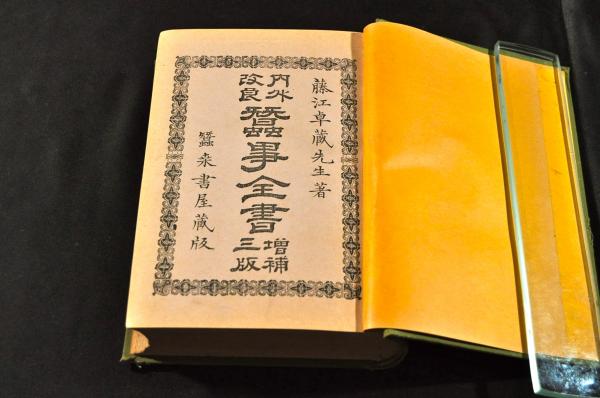 藤江卓藏先生著
内外
改良
蠶事全書
増補
三版
蠶桒書屋藏版